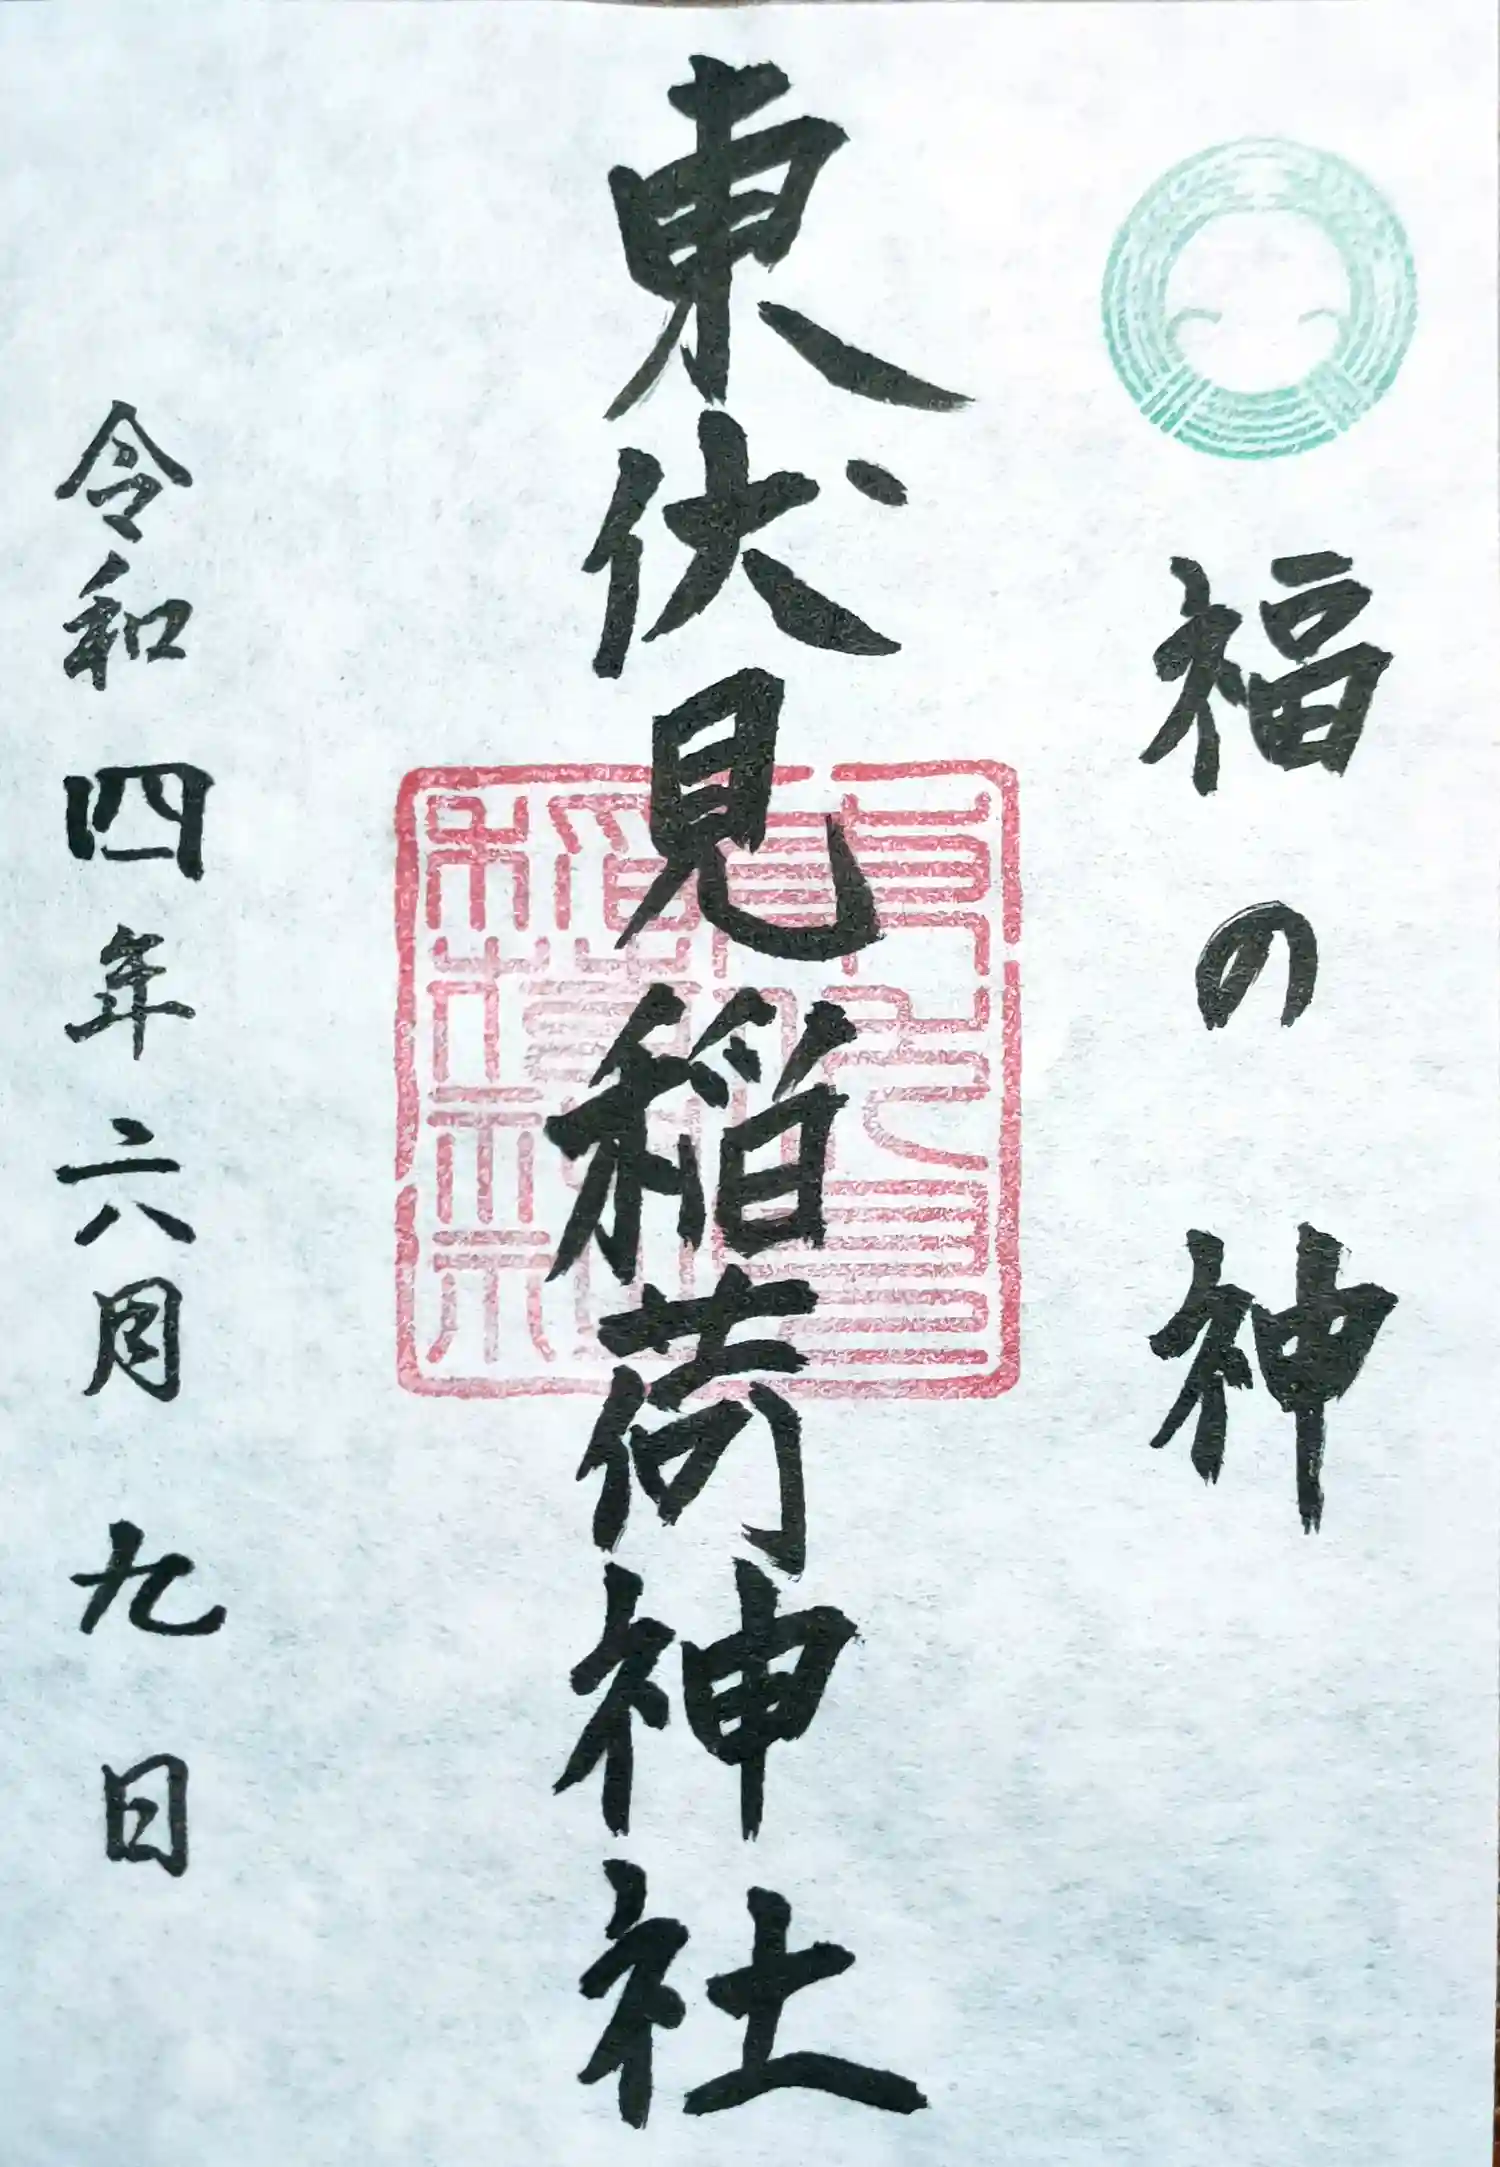 福の神
東伏見稲荷神社
令和四年六月九日